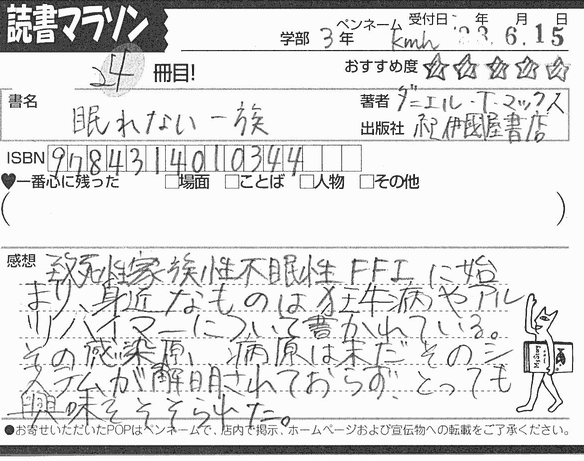 読書マラソン
学部 3年 ペンネーム kmh 受付日 '23年 6月 15日
24 冊目! おすすめ度 ☆☆☆☆☆
書名 眠れない一族
著者 ダニエル・T・マックス
出版社 紀伊國屋書店
ISBN 9784314010344
♥一番心に残った □場面 □ことば □人物 □その他
( )
感想 致死性家族性不眠性FFIに始
まり、身近なものは狂牛病やアル
ツハイマーについて書かれている。
その感染原、病原は未だそのシ
ステムが解明されておらず、とっても
興味をそそられた。
●お寄せいただいたPOPはペンネームで、店内で掲示、ホームページおよび宣伝物への転載をご了承ください。